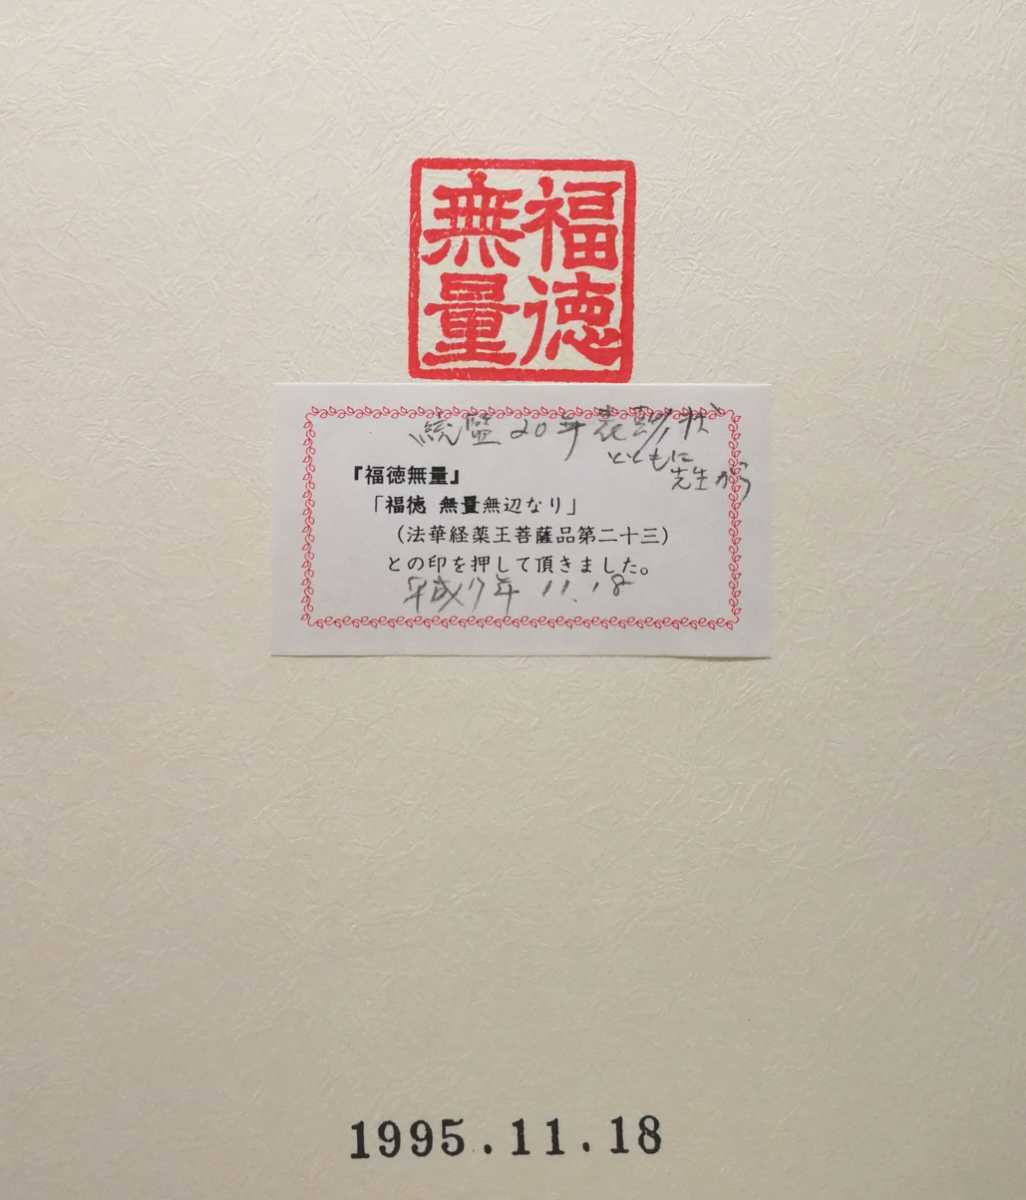 福徳
無量
統監20年表彰状
とともに
先生から
『福徳無量』
「福徳 無量無辺なり」
(法華経薬王菩薩品第二十三)
との印を押して頂きました。
平成7年 11.18
1995.11.18